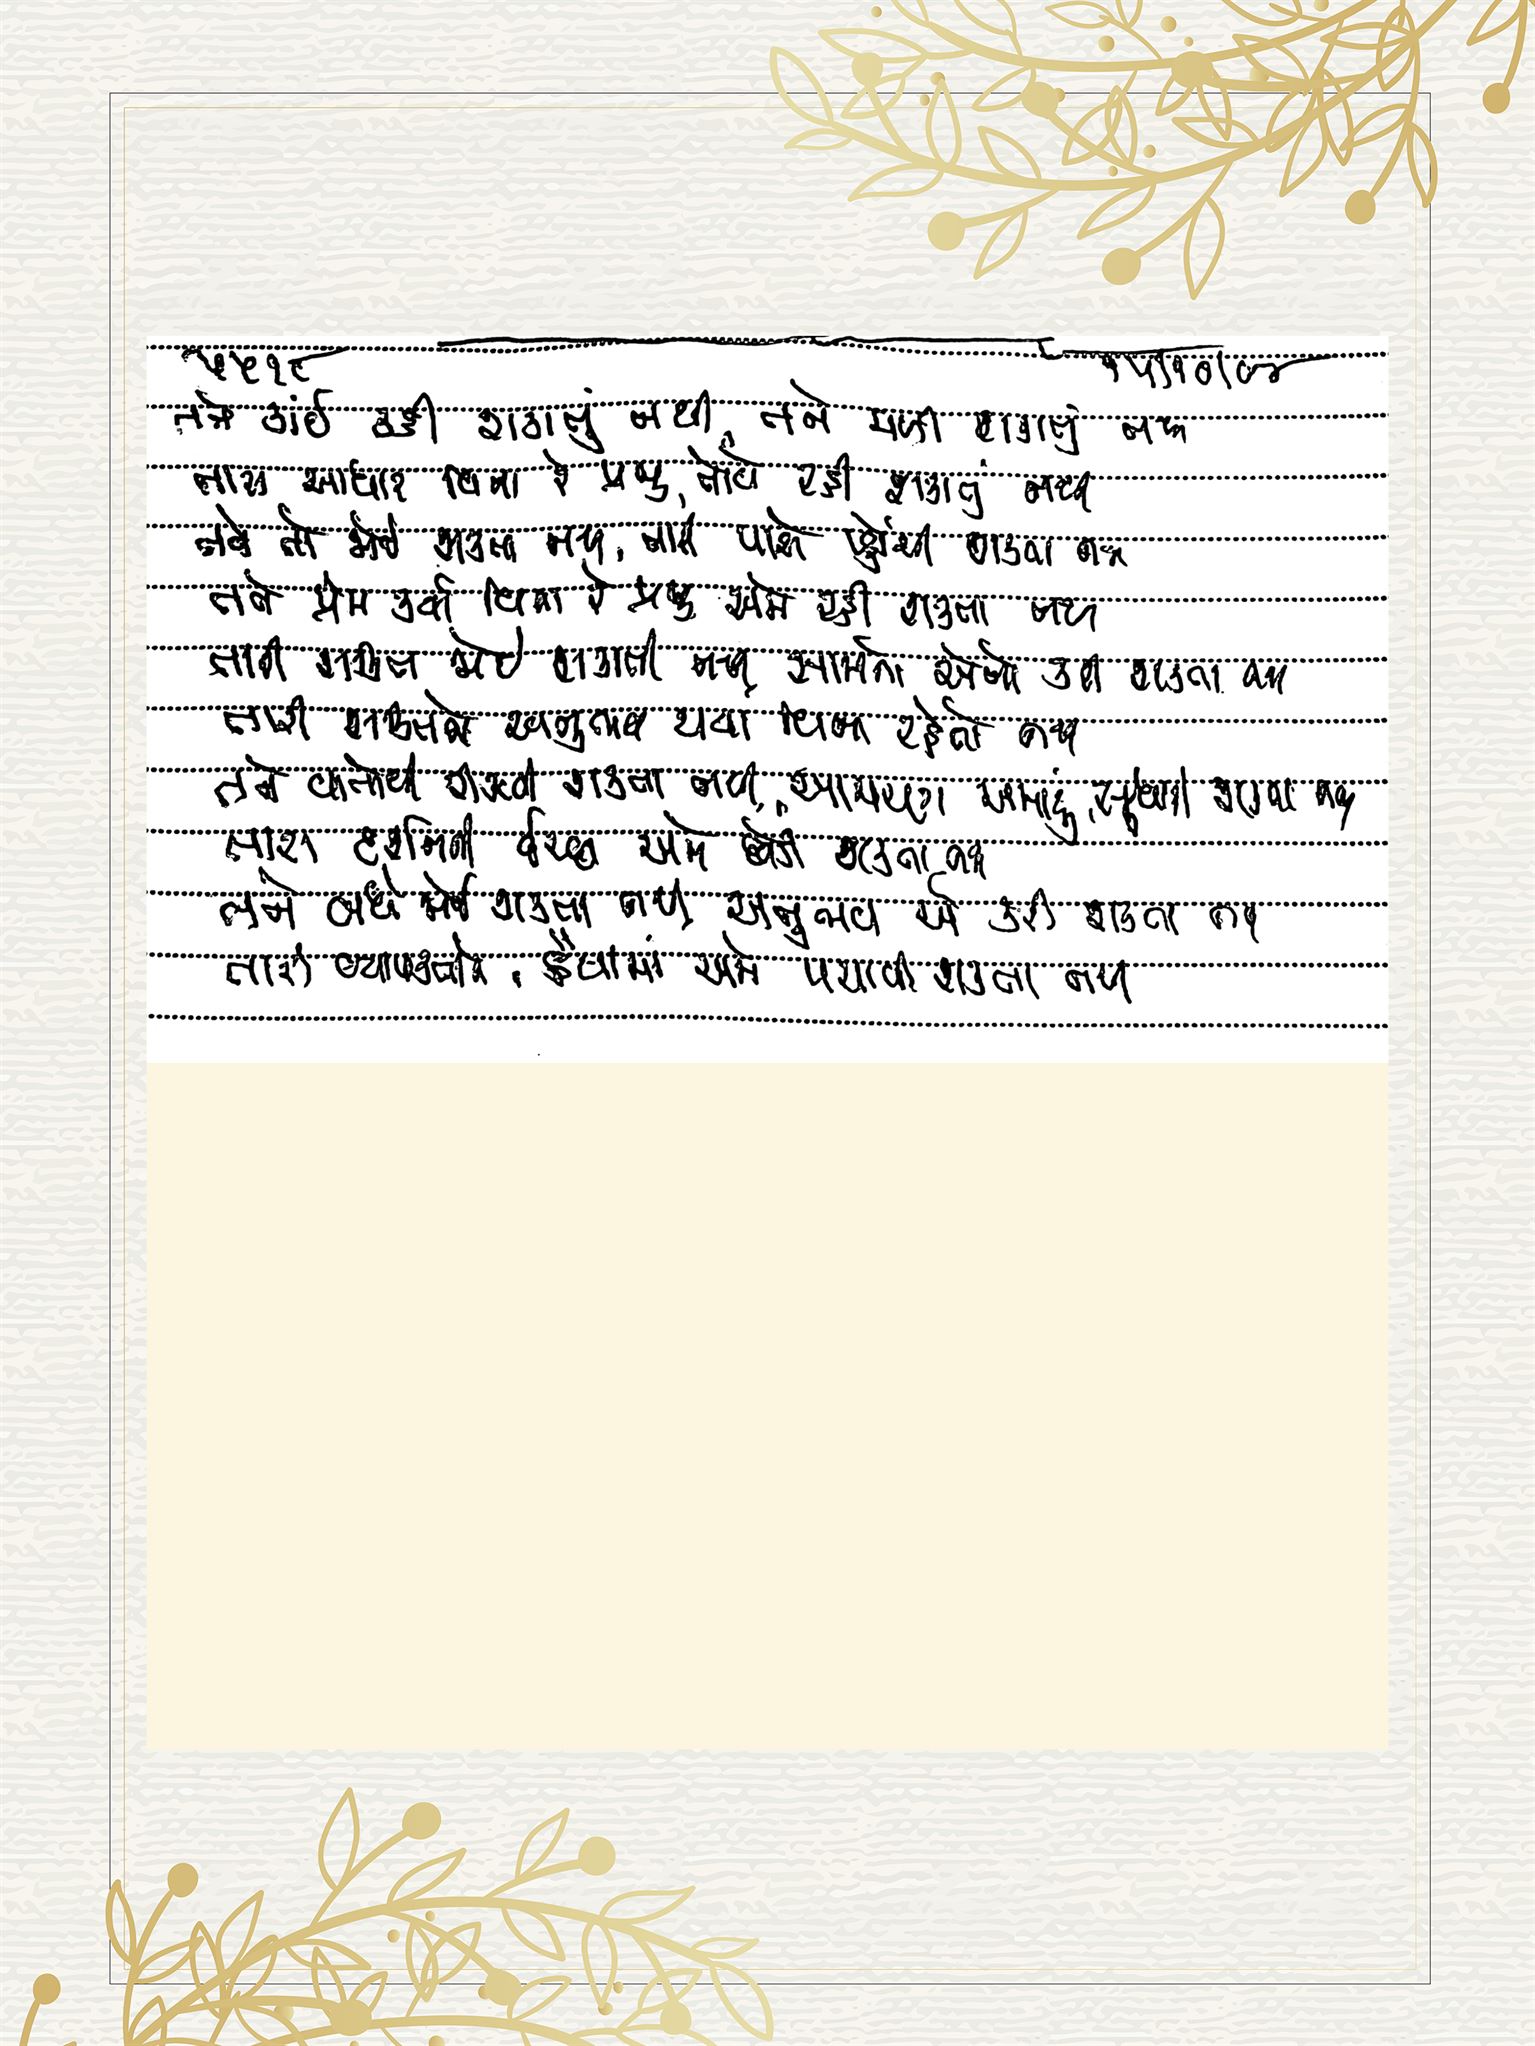 ૫૫૧૮ ૧૫/૧૦/૦૪
તને કાંઈ કહી શકાતું નથી, તને મળી શકાતું નથી
તારા આધાર વિના રે પ્રભુ, તોયે રહી શકાતું નથી
તને તો જોઈ શકતા નથી, તારી પાસે પહોંચી શકતા નથી
તને પ્રેમ કર્યા વિના રે પ્રભુ અમે રહી શકતા નથી
તારી શક્તિને જોઈ શકાતી નથી, સામનો એનો કરી શકતા નથી
તારી શક્તિનો અનુભવ થયા વિના રહેતો નથી
તને વાતોથી રીઝવી શકતા નથી, શકતા નથી
તારા દર્શનની ઈચ્છા અમે છોડી શકતા નથી
તને બધે જોઈ શકતા નથી, અનુભવ એ કરી શકતા નથી
તારી વ્યાપકતાને, હૈયામાં અમે પચાવી શકતા નથી